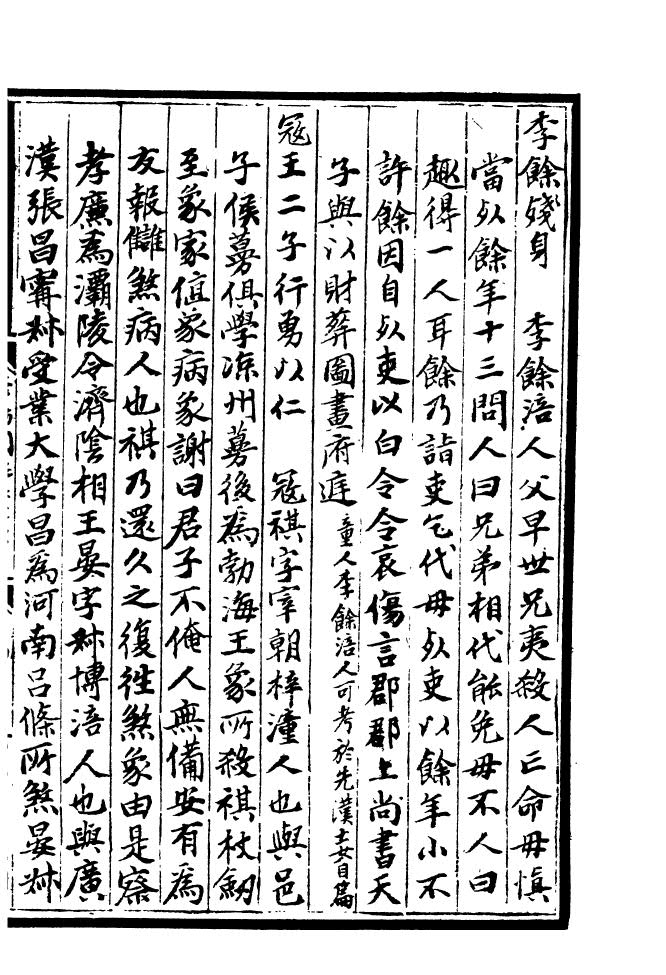 李餘殘身　李餘涪人父早世兄夷殺人亡命毋愼
當㱠餘年十三問人曰兄弟相代能免毋不人曰
趣得一人耳餘乃詣吏乞代毋㱠吏以餘年小不
許餘因自㱠吏以白令令哀傷言郡郡上尚書天
子與以財葬圖畫府庭 童人李餘涪人可考於先漢士女目篇
冦王二子行勇以仁　冦祺字宰朝梓潼人也與邑
子侯蔓俱學涼州蔓後爲勃海王象所殺祺杖劒
至象家值象病象謝曰君子不俺人無備安有爲
友報讎煞病人也祺乃還久之復徃煞象由是察
孝廉爲灞陵令濟隂相王晏字叔博涪人也與廣
漢張昌甯叔受業大學昌爲河南吕條所煞晏叔